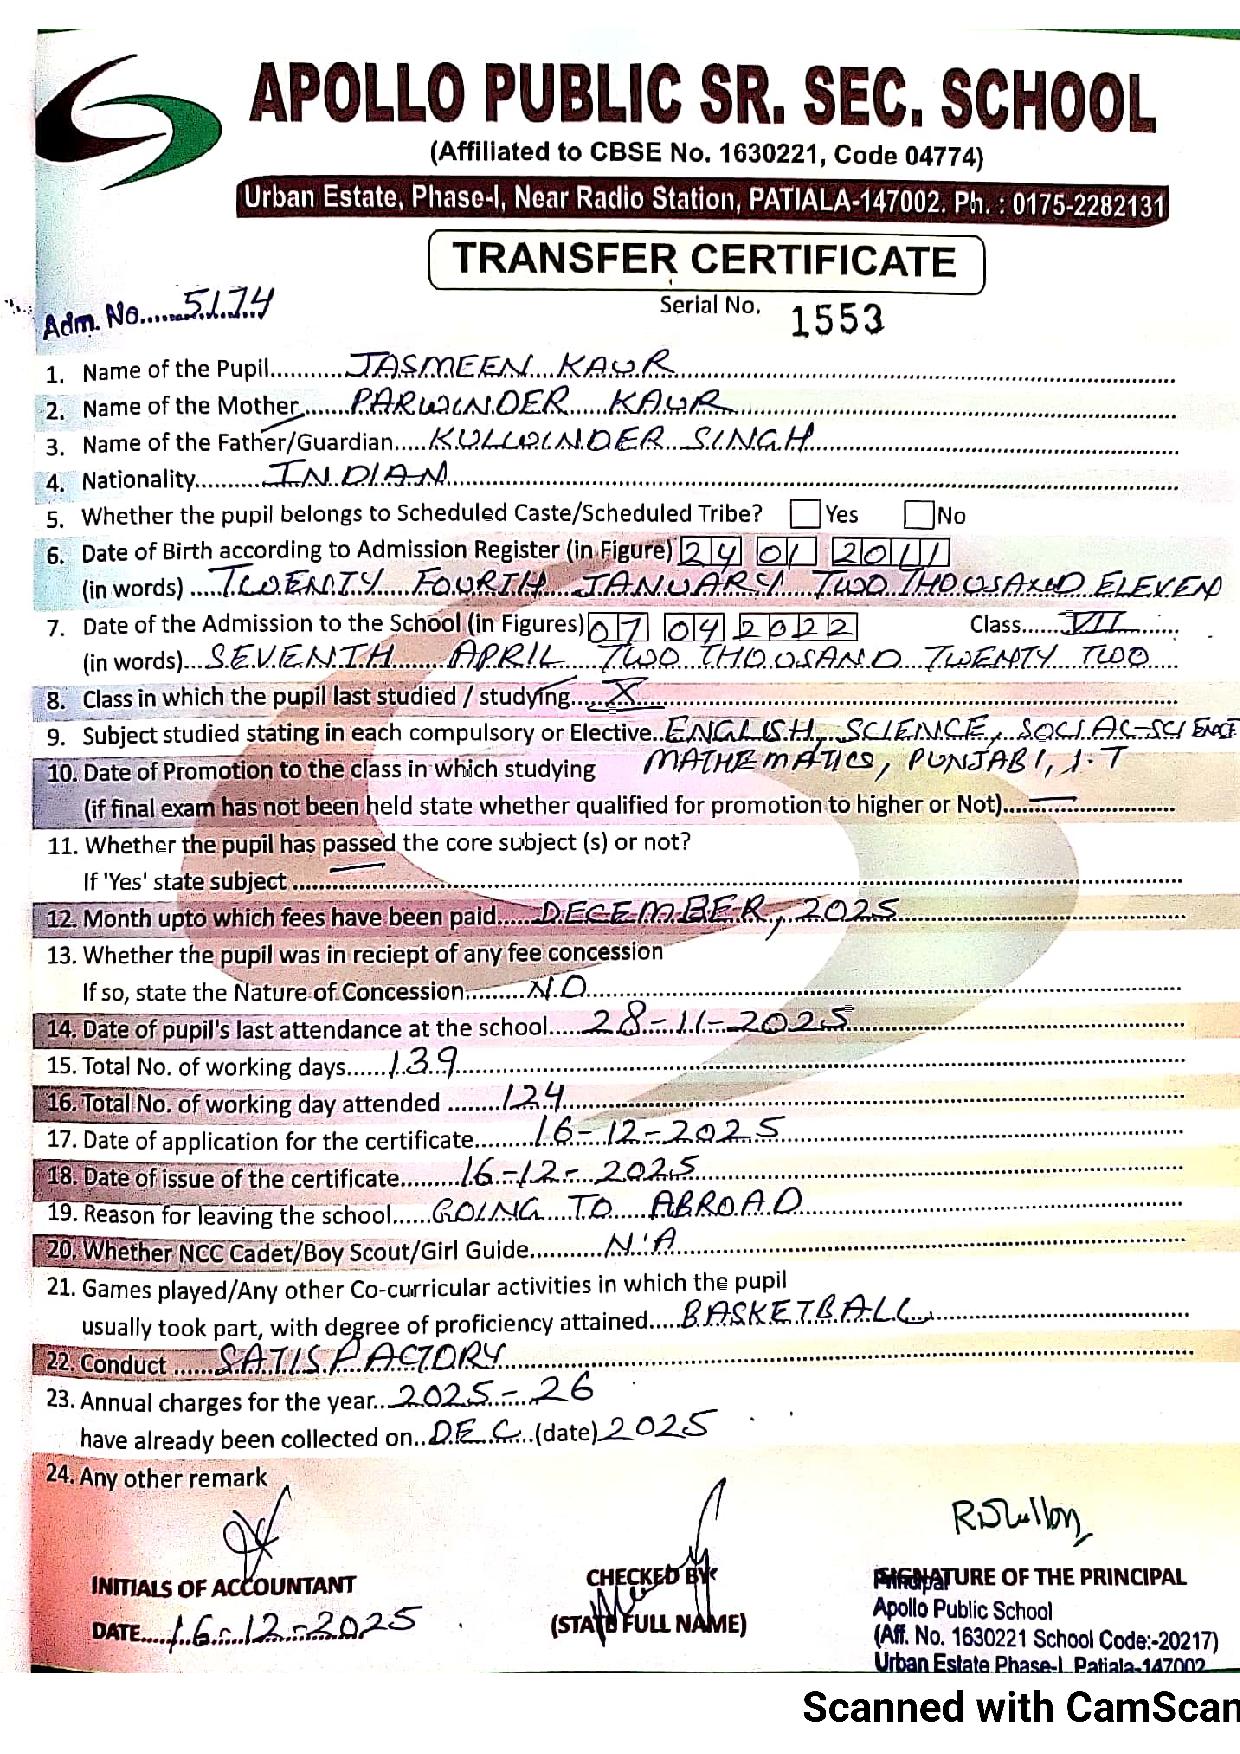 APOLLO PUBLIC SR. SEC. SCHOOL
(Affiliated to CBSE No. 1630221, Code 04774)
Urban Estate, Phase-I, Near Radio Station, PATIALA-147002. Ph. : 0175-2282131
TRANSFER CERTIFICATE
Adm. No. 5174
Serial No. 1553
1. Name of the Pupil JASMEEN KAUR
2. Name of the Mother PARWINDER KAUR
3. Name of the Father/Guardian KULWINDER SINGH
4. Nationality INDIAN
5. Whether the pupil belongs to Scheduled Caste/Scheduled Tribe? Yes No
6. Date of Birth according to Admission Register (in Figure) 24 01 2011
(in words) TWENTY FOURTH JANUARY TWO THOUSAND ELEVEN
7. Date of the Admission to the School (in Figures) 07 04 2022 Class VII
(in words) SEVENTH APRIL TWO THOUSAND TWENTY TWO
8. Class in which the pupil last studied / studying X
9. Subject studied stating in each compulsory or Elective ENGLISH, SCIENCE, SOCIAL-SCIENCE
MATHEMATICS, PUNJABI, I.T
10. Date of Promotion to the class in which studying
(if final exam has not been held state whether qualified for promotion to higher or Not) —
11. Whether the pupil has passed the core subject (s) or not?
If 'Yes' state subject —
12. Month upto which fees have been paid DECEMBER, 2025
13. Whether the pupil was in reciept of any fee concession
If so, state the Nature of Concession NO
14. Date of pupil's last attendance at the school 28-11-2025
15. Total No. of working days 139
16. Total No. of working day attended 124
17. Date of application for the certificate 16-12-2025
18. Date of issue of the certificate 16-12-2025
19. Reason for leaving the school GOING TO ABROAD
20. Whether NCC Cadet/Boy Scout/Girl Guide N'A
21. Games played/Any other Co-curricular activities in which the pupil
usually took part, with degree of proficiency attained BASKETBALL
22. Conduct SATISFACTORY
23. Annual charges for the year 2025-26
have already been collected on DEC (date) 2025
24. Any other remark
INITIALS OF ACCOUNTANT
CHECKED BY
SIGNATURE OF THE PRINCIPAL
Principal
DATE 16-12-2025
(STATE FULL NAME)
Apollo Public School
(Aff. No. 1630221 School Code:-20217)
Urban Estate Phase-I, Patiala-147002
Scanned with CamScan